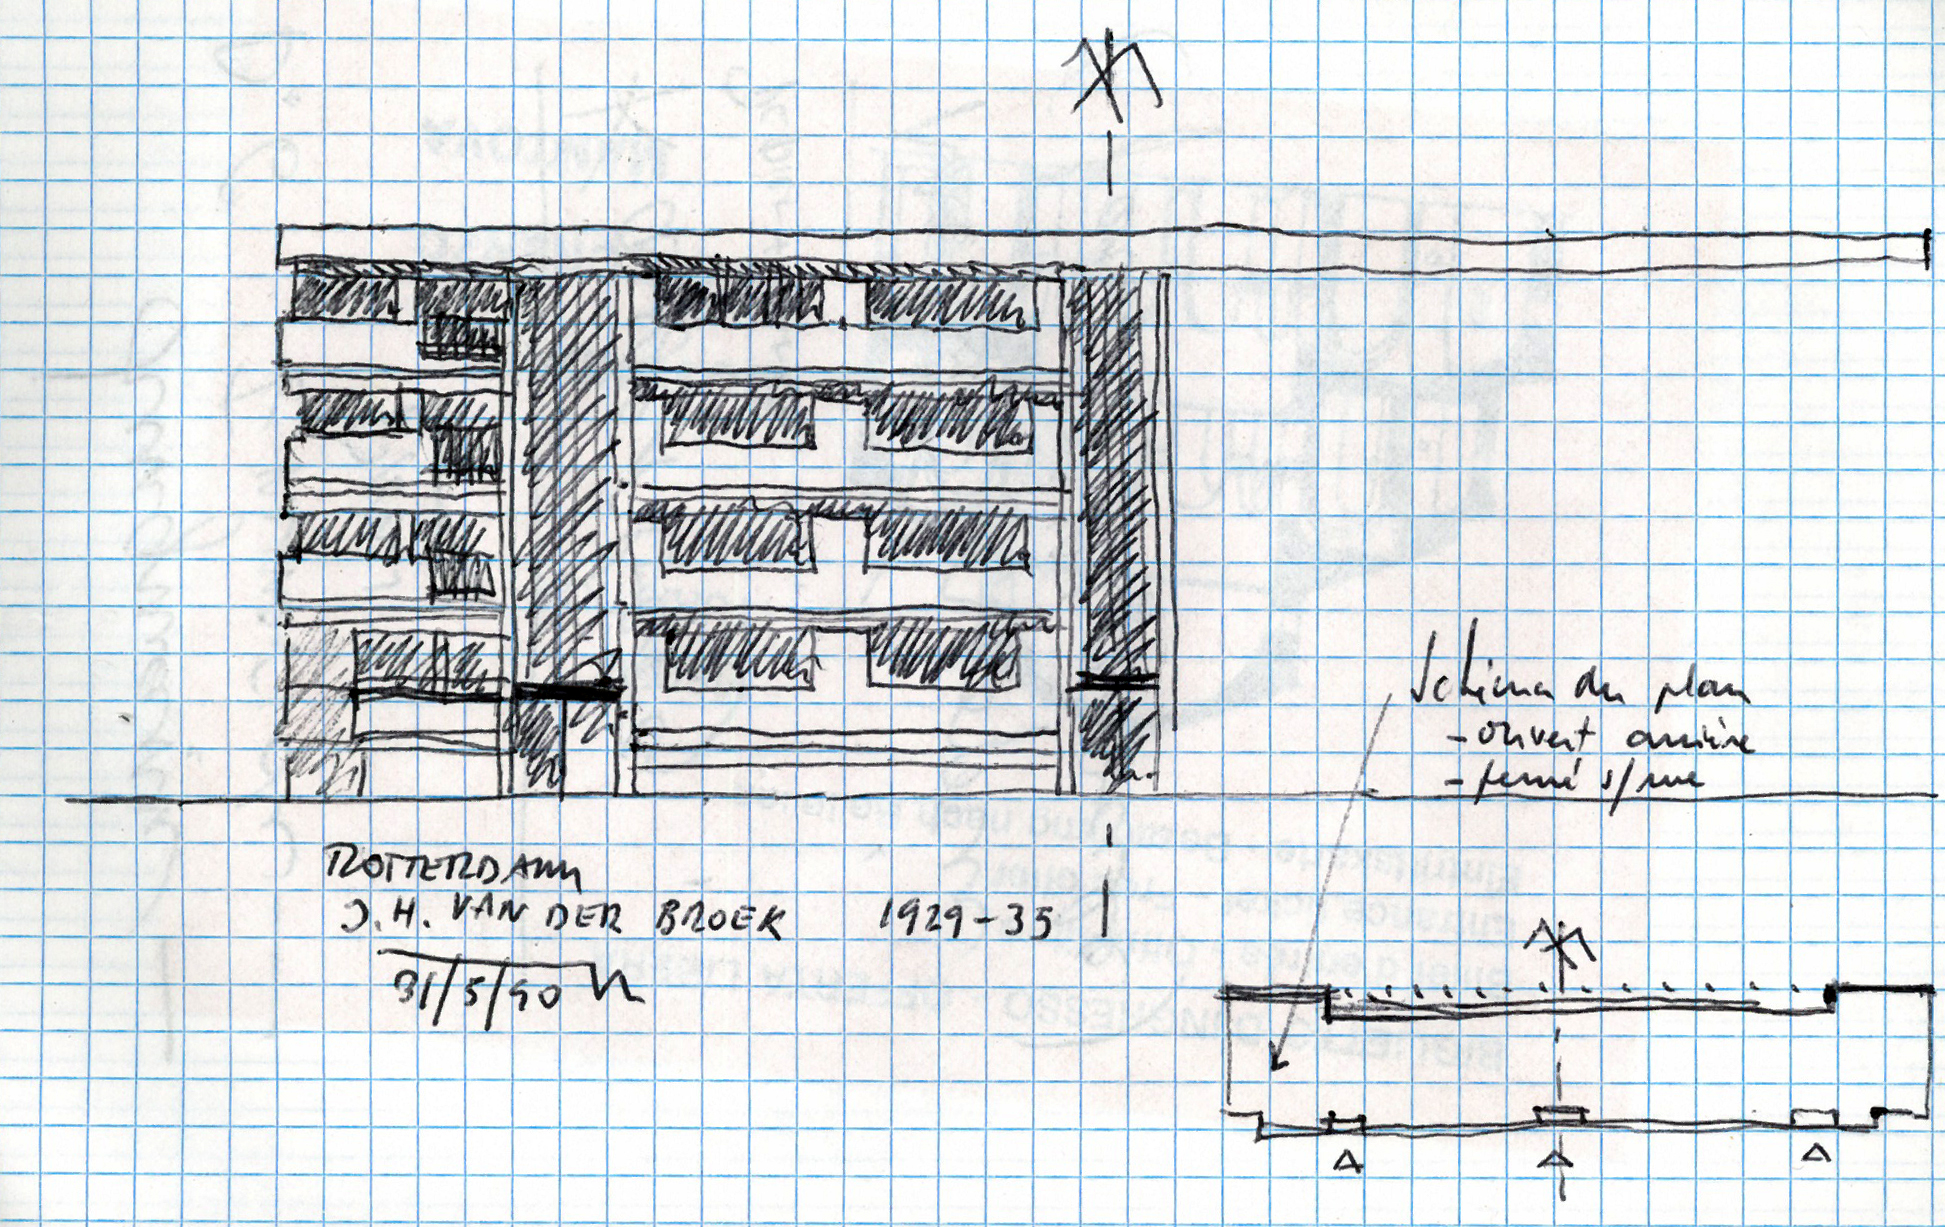 Schéma du plan
- ouvert arrière
- fermé s/rue
ROTTERDAM
J. H. VAN DER BROEK 1929-35
31/5/90